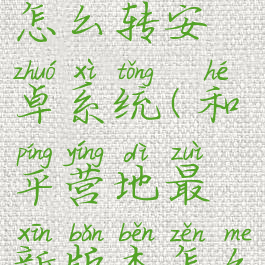 怎么转安
zhuó xì tǒng hé
卓系统(和
píng yíng dì zuì
平营地最
xīn bǎn běn zěn me
新版本怎么